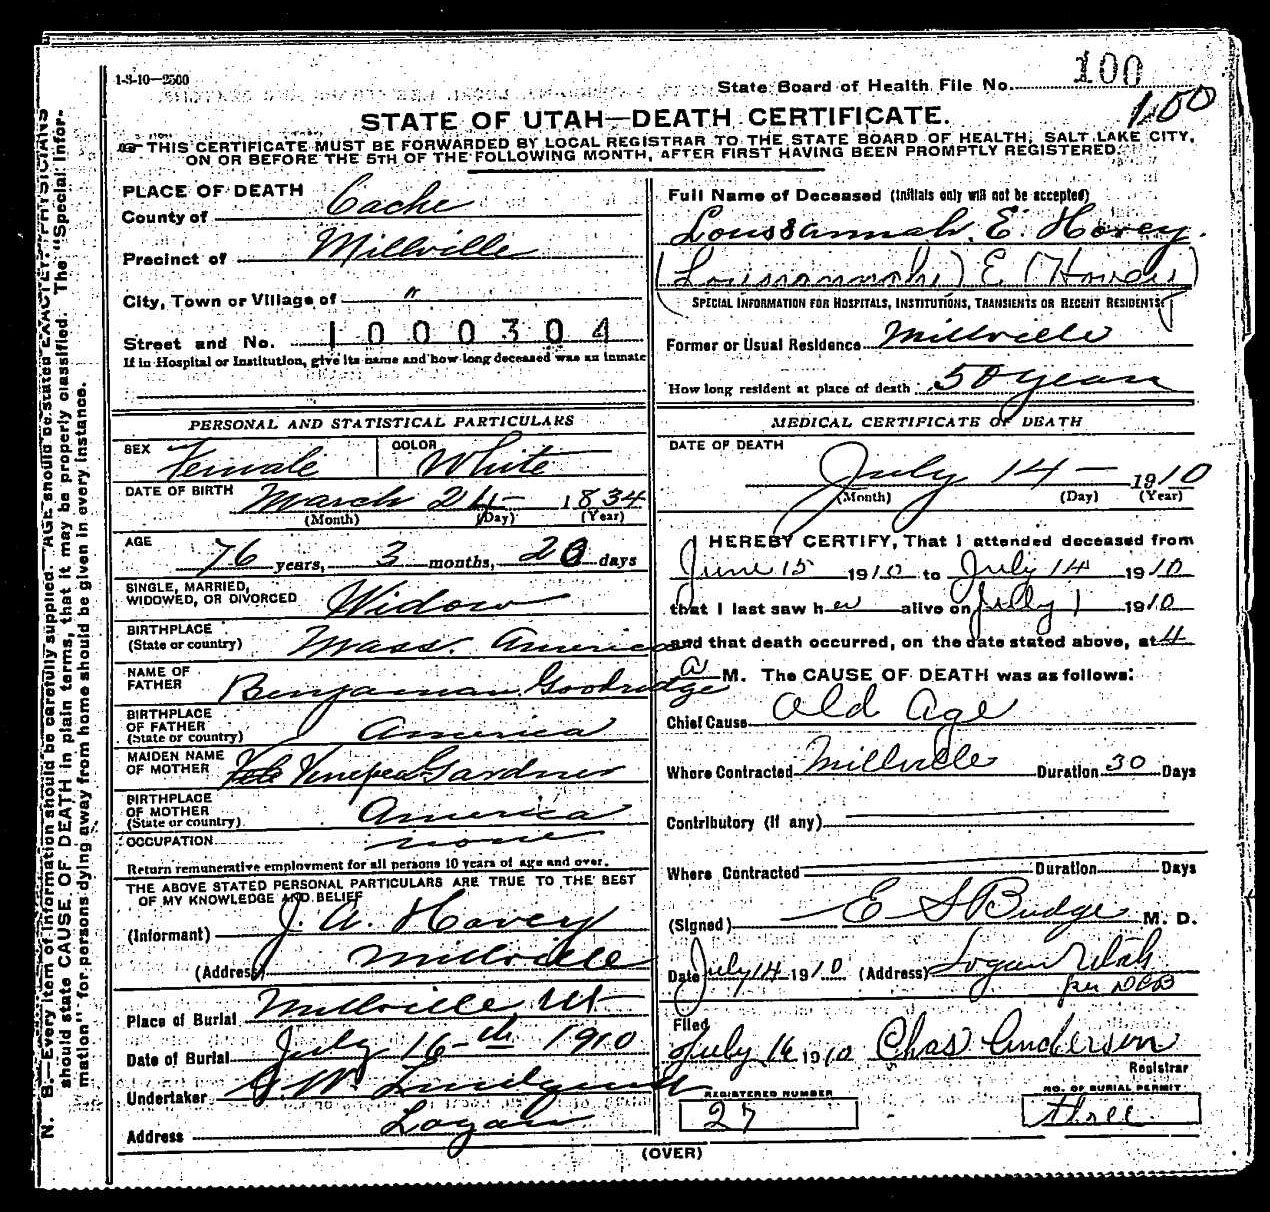 1-3-10—2500
State Board of Health File No. 100
150
STATE OF UTAH—DEATH CERTIFICATE.
THIS CERTIFICATE MUST BE FORWARDED BY LOCAL REGISTRAR TO THE STATE BOARD OF HEALTH, SALT LAKE CITY,
ON OR BEFORE THE 5TH OF THE FOLLOWING MONTH, AFTER FIRST HAVING BEEN PROMPTLY REGISTERED.
PLACE OF DEATH
County of Cache
Precinct of Millville
City, Town or Village of "
Street and No. 1000304
If in Hospital or Institution, give its name and how long deceased was an inmate
Full Name of Deceased (Initials only will not be accepted)
Loussannah. E. Hovey.
(Loussannah) E (Hovey)
(SPECIAL INFORMATION FOR HOSPITALS, INSTITUTIONS, TRANSIENTS OR RECENT RESIDENTS)
Former or Usual Residence Millville
How long resident at place of death 50 years
PERSONAL AND STATISTICAL PARTICULARS
SEX Female COLOR White
DATE OF BIRTH March 24 1834
(Month) (Day) (Year)
AGE
76 years, 3 months, 20 days
SINGLE, MARRIED,
WIDOWED, OR DIVORCED Widow
BIRTHPLACE
(State or country) Mass. America
NAME OF
FATHER Benjaman Goodridge
BIRTHPLACE
OF FATHER
(State or country) America
MAIDEN NAME
OF MOTHER Gardner
BIRTHPLACE
OF MOTHER
(State or country) America
OCCUPATION none
Return remunerative employment for all persons 10 years of age and over.
THE ABOVE STATED PERSONAL PARTICULARS ARE TRUE TO THE BEST
OF MY KNOWLEDGE AND BELIEF
(Informant) J. A. Hovey
(Address) Millville
Place of Burial Millville Ut
Date of Burial July 16th 1910
Undertaker Lindquist
Address Logan
MEDICAL CERTIFICATE OF DEATH
DATE OF DEATH
July 14 1910
(Month) (Day) (Year)
I HEREBY CERTIFY, That I attended deceased from
June 15 1910 to July 14 1910
that I last saw her alive on July 1 1910
and that death occurred, on the date stated above, at 4
a M. The CAUSE OF DEATH was as follows:
Chief Cause Old Age
Where Contracted Millville Duration 30 Days
Contributory (if any)
Where Contracted Duration Days
(Signed) E S Budge M. D.
Date July 14 1910 (Address) Logan Utah
per DCB
Filed
July 16 1910 Chas Anderson
Registrar
REGISTERED NUMBER
27
NO. OF BURIAL PERMIT
three
(OVER)
N. B.—Every item of information should be carefully supplied. AGE should be stated EXACTLY. PHYSICIANS
should state CAUSE OF DEATH in plain terms, that it may be properly classified. The "Special Infor-
mation" for persons dying away from home should be given in every instance.